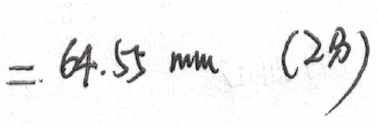 = 64.55 mm (2分)